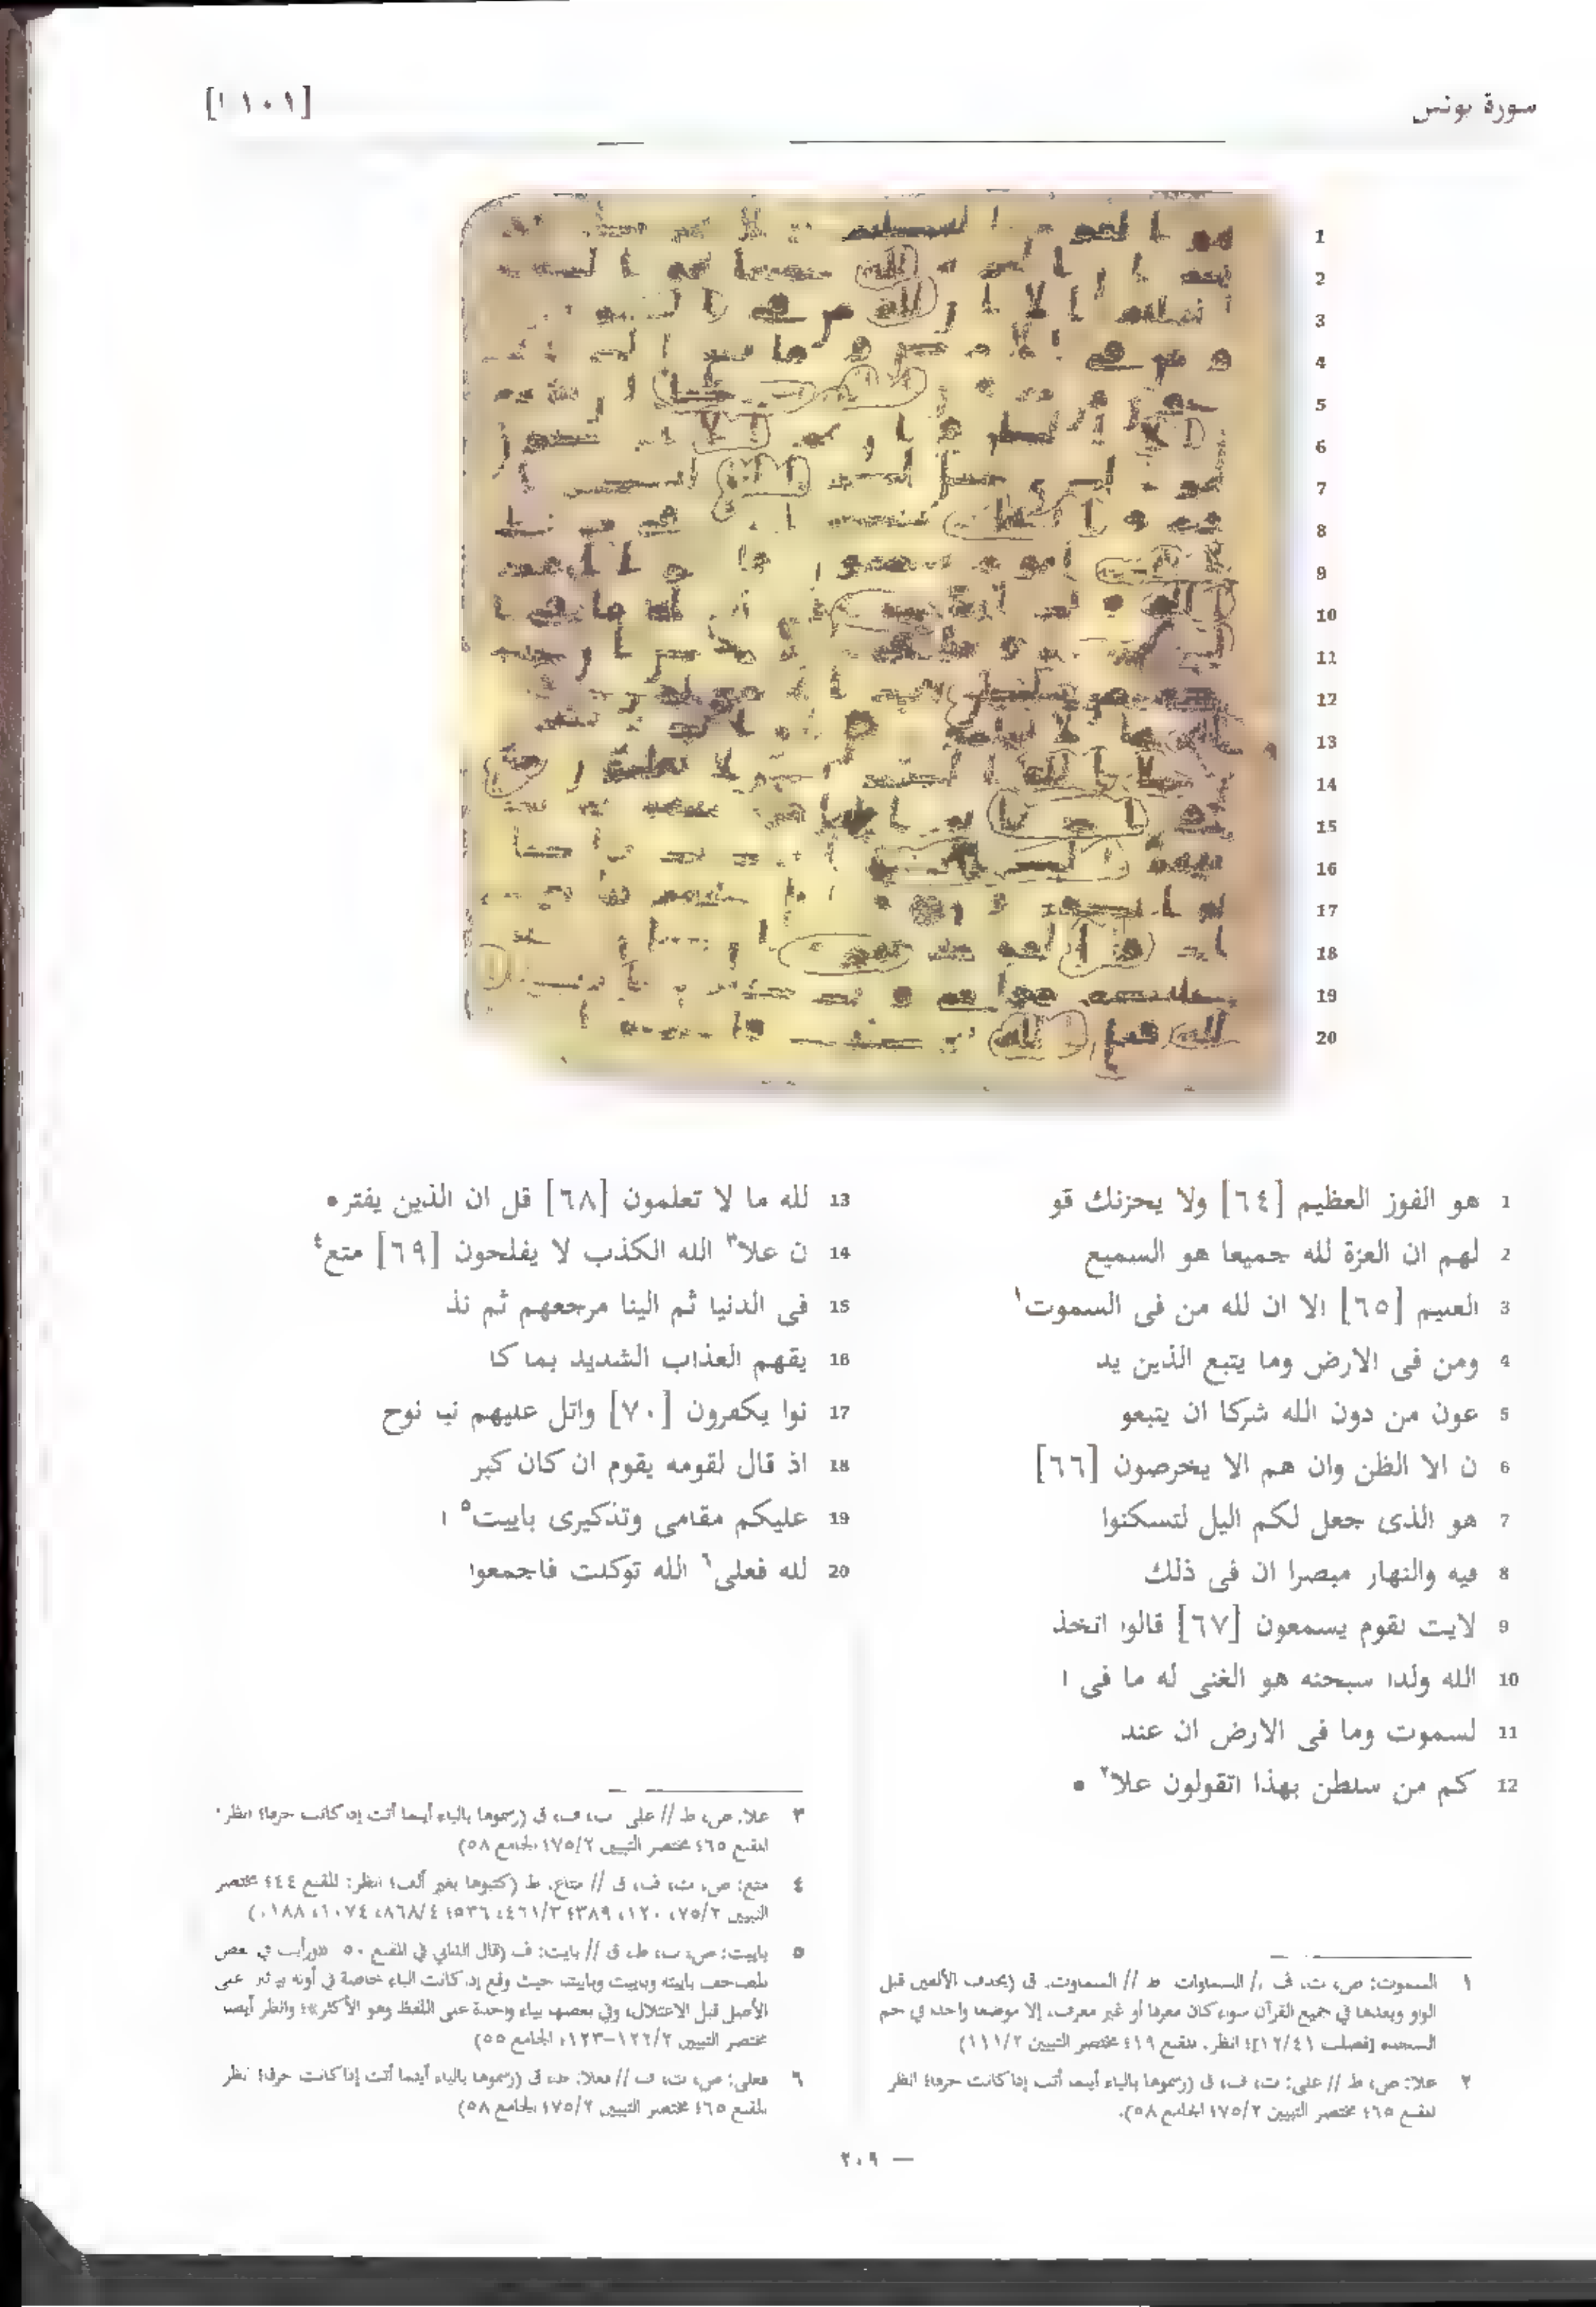 سورة يونس
[١٠١ ا]
1 هو الفوز العظيم [٦٤] ولا يحزنك قو
2 لهم ان العزة لله جميعا هو السميع
3 العليم [٦٥] الا ان لله من فى السموت١
4 ومن فى الارض وما يتبع الذين يد
5 عون من دون الله شركا ان يتبعو
6 ن الا الظن وان هم الا يخرصون [٦٦]
7 هو الذى جعل لكم اليل لتسكنوا
8 فيه والنهار مبصرا ان فى ذلك
9 لايت لقوم يسمعون [٦٧] قالوا اتخذ
10 الله ولدا سبحنه هو الغنى له ما فى ا
11 لسموت وما فى الارض ان عند
12 كم من سلطن بهذا اتقولون علا٢ •
13 لله ما لا تعلمون [٦٨] قل ان الذين يفتر•
14 ن علا٣ الله الكذب لا يفلحون [٦٩] متع٤
15 فى الدنيا ثم الينا مرجعهم ثم نذ
16 يقهم العذاب الشديد بما كا
17 نوا يكفرون [٧٠] واتل عليهم نب نوح
18 اذ قال لقومه يقوم ان كان كبر
19 عليكم مقامى وتذكيرى باييت٥ ا
20 لله فعلى٦ الله توكلت فاجمعوا
١ السموت: ص، ت، ف // السماوات ط // السماوت. ق (بحذف الألفين قبل
الواو وبعدها في جميع القرآن سواء كان معرفا أو غير معرف، إلا موضعا واحدا في حم
السجدة [فصلت ١٢/٤١]؛ انظر. المقنع ١٩؛ مختصر التبيين ١١١/٢)
٢ علا: ص، ط // على: ت، ف، ق (رسموها بالياء أينما أتت إذا كانت حرفا؛ انظر
المقنع ٦٥؛ مختصر التبيين ٧٥/٢؛ الجامع ٥٨).
٣ علا. ص، ط // على ت، ف، ق (رسموها بالياء أينما أتت إذا كانت حرفا؛ انظر
المقنع ٦٥؛ مختصر التبيين ٧٥/٢؛ الجامع ٥٨)
٤ متع: ص، ت، ف، ق // متاع. ط (كتبوها بغير ألف؛ انظر: المقنع ٤٤؛ مختصر
التبيين
٥ باييت: ص، ت، ط، ق // بايت: ف (قال الداني في المقنع ٥٠ ورأيت في بعض
المصاحف باييته وباييت وباييتنا حيث وقع إذا كانت الباء خاصة في أوله بياءين على
الأصل قبل الاعتلال، وفي بعضها بياء واحدة على اللفظ وهو الأكثر»؛ وانظر أيضا
مختصر التبيين ١٢٢/٢–١٢٣؛ الجامع ٥٥)
٦ فعلى: ص، ت، ف // فعلا: ط، ق (رسموها بالياء أينما أتت إذا كانت حرفا؛ انظر
المقنع ٦٥؛ مختصر التبيين ٧٥/٢؛ الجامع ٥٨)
— ٢٠٩